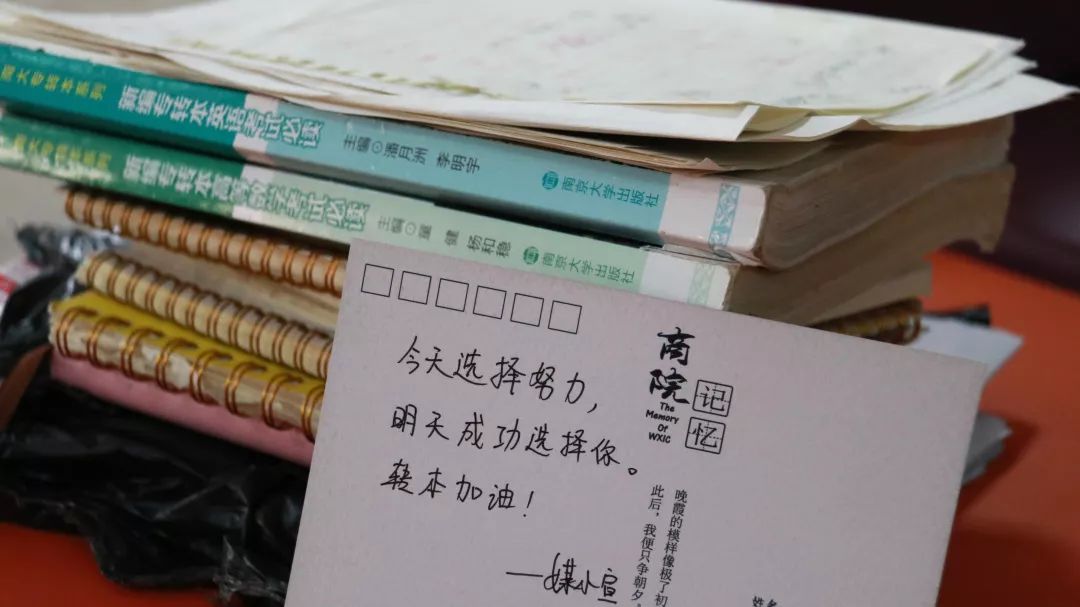 南大专转本系列 新编专转本英语考试必读 主编 潘月洲 李明宇 南京大学出版社
南大专转本系列 新编专转本高等数学考试必读 主编 童 健 杨和稳 南京大学出版社
今天选择努力，
明天成功选择你。
转本加油！
——媒小宣
商院
记忆
The
Memory
Of
WXIC
晚霞的模样像极了初
此后，我便只争朝夕。
姓名